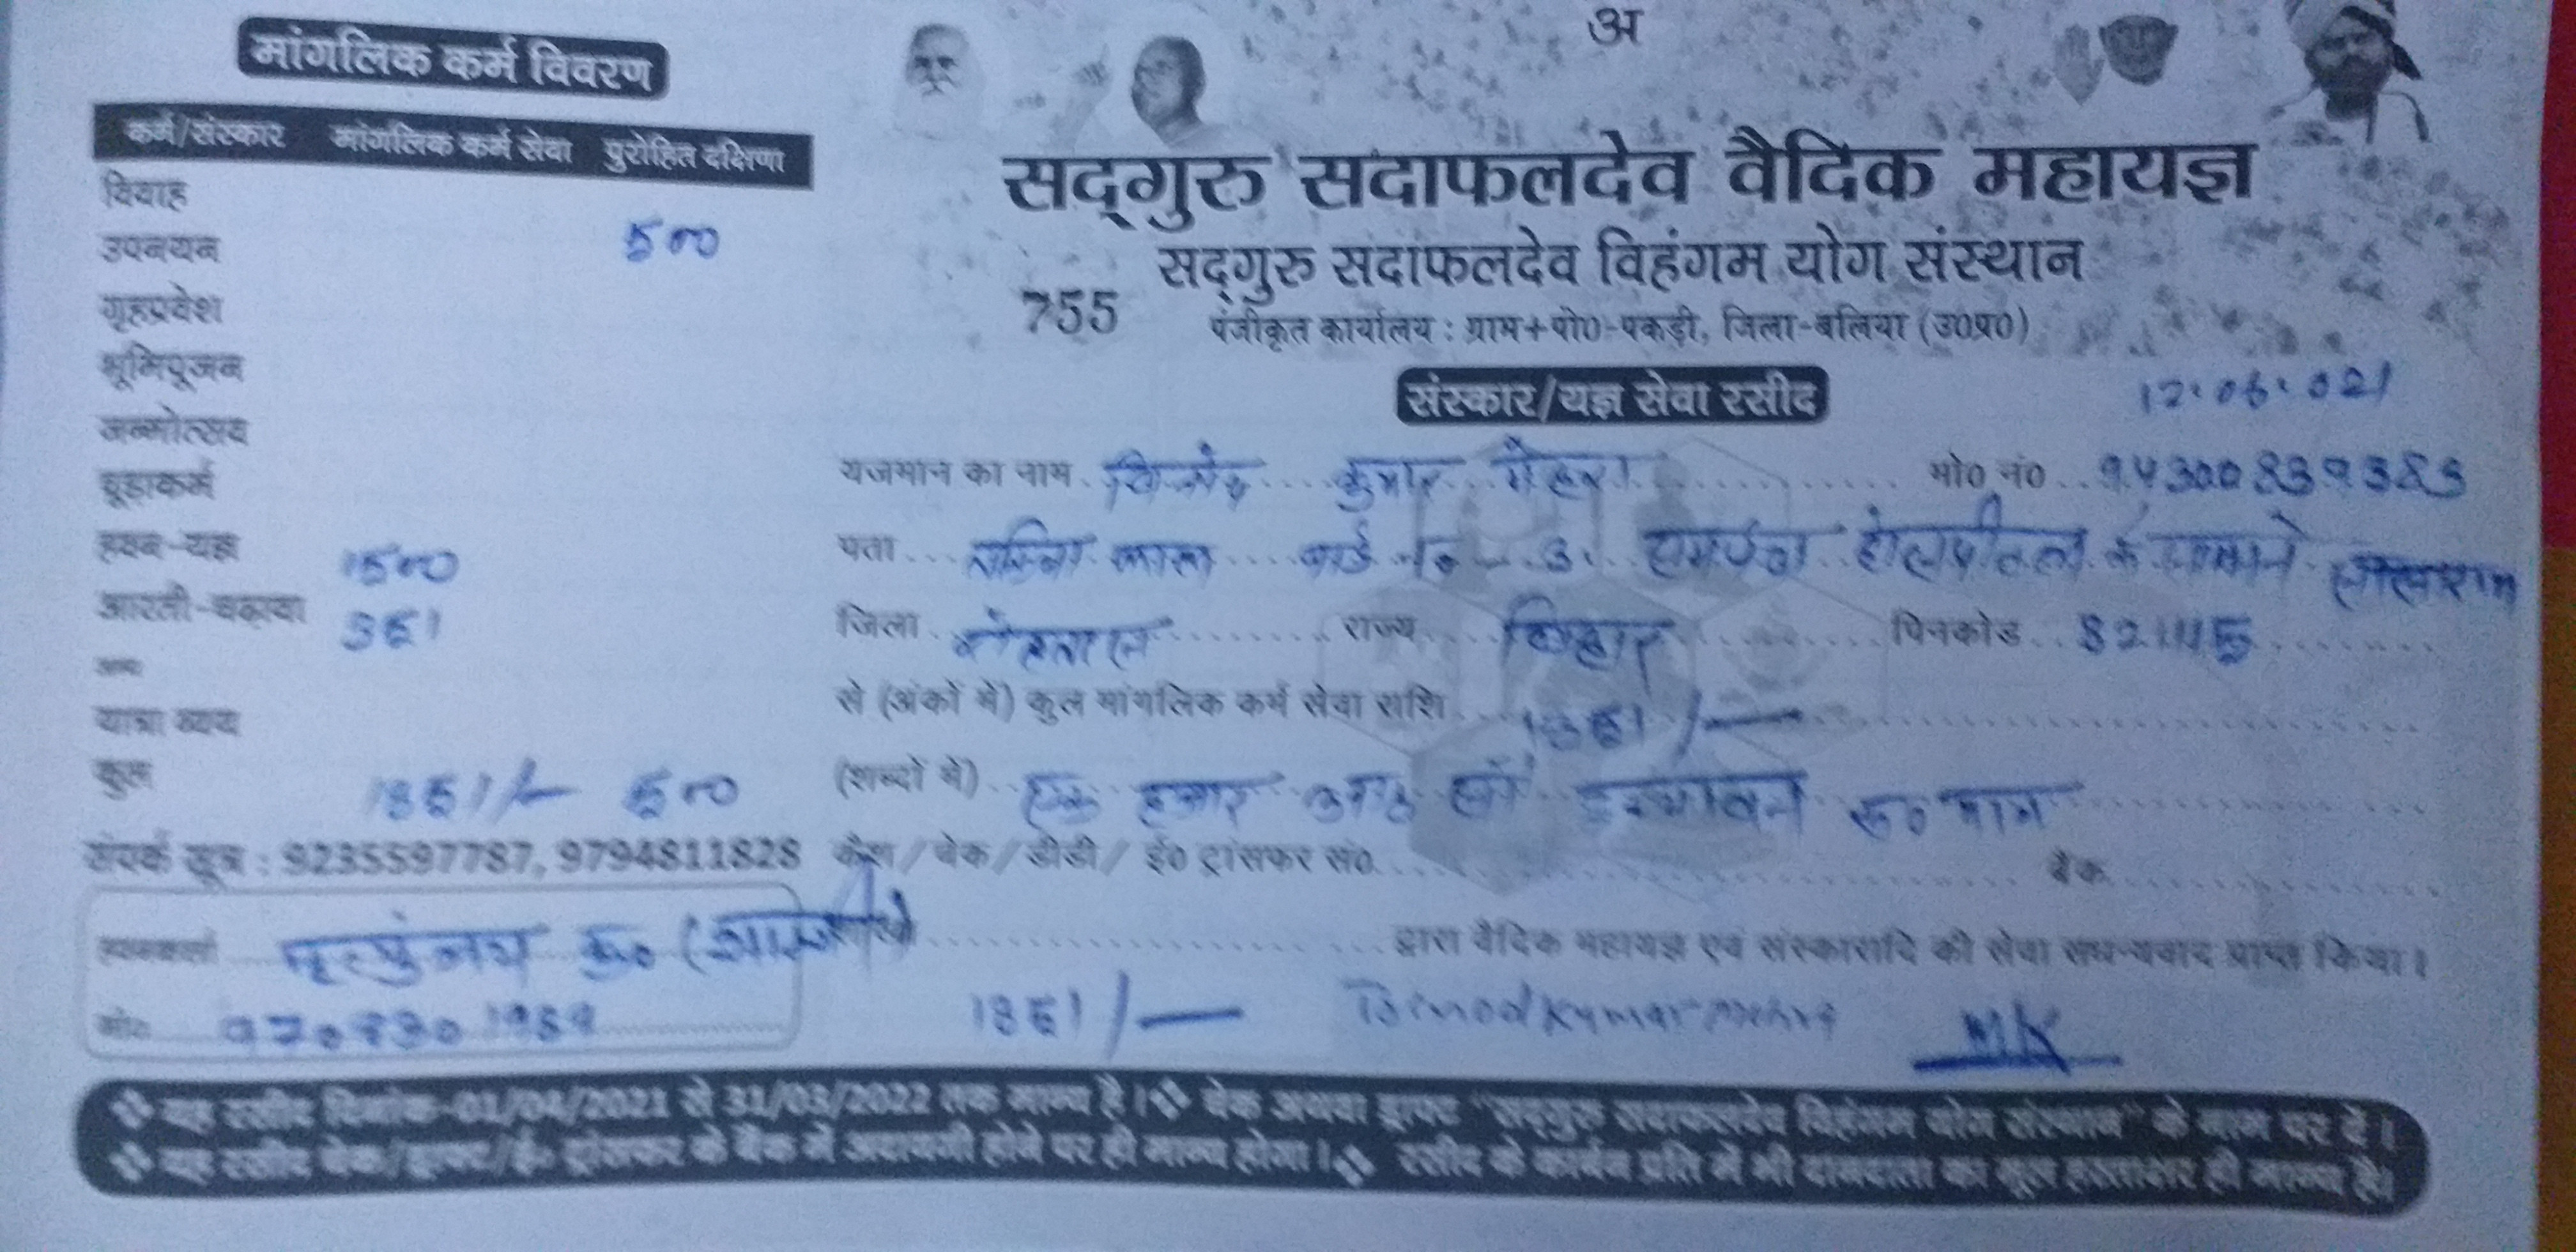 अ
मांगलिक कर्म विवरण
कर्म/संस्कार मांगलिक कर्म सेवा पुरोहित दक्षिणा
विवाह
उपनयन 500
गृहप्रवेश
भूमिपूजन
जन्मोत्सव
चूड़ाकर्म
हवन-यज्ञ 1500
आरती-चढ़ावा 351
यात्रा व्यय
कुल 1851/- 500
संपर्क सूत्र : 9235597787, 9794811828
मृत्युंजय कु०
मो०
सद्गुरु सदाफलदेव वैदिक महायज्ञ
सद्गुरु सदाफलदेव विहंगम योग संस्थान
755 पंजीकृत कार्यालय : ग्राम+पो०-पकड़ी, जिला-बलिया (उ०प्र०)
संस्कार/यज्ञ सेवा रसीद
12.06.021
यजमान का नाम कुमार मेहरा मो० नं०
पता वार्ड के सामने सासाराम
जिला रोहतास राज्य बिहार पिनकोड 821115
से (अंकों में) कुल मांगलिक कर्म सेवा राशि 1851/-
(शब्दों में) एक हजार आठ सौ इक्यावन रु० मात्र
कैश/चेक/डीडी/ ई० ट्रांसफर सं० बैंक
द्वारा वैदिक महायज्ञ एवं संस्कारादि की सेवा सधन्यवाद प्राप्त किया।
1851/- Binod Kumar mehra MK
यह रसीद दिनांक-01/04/2021 से 31/03/2022 तक मान्य है। चेक अथवा ड्राफ्ट "सद्गुरु सदाफलदेव विहंगम योग संस्थान" के नाम पर दें।
यह रसीद चेक/ड्राफ्ट/ई० ट्रांसफर के बैंक में अदायगी होने पर ही मान्य होगा। रसीद के कार्बन प्रति में भी दानदाता का मूल हस्ताक्षर ही मान्य है।